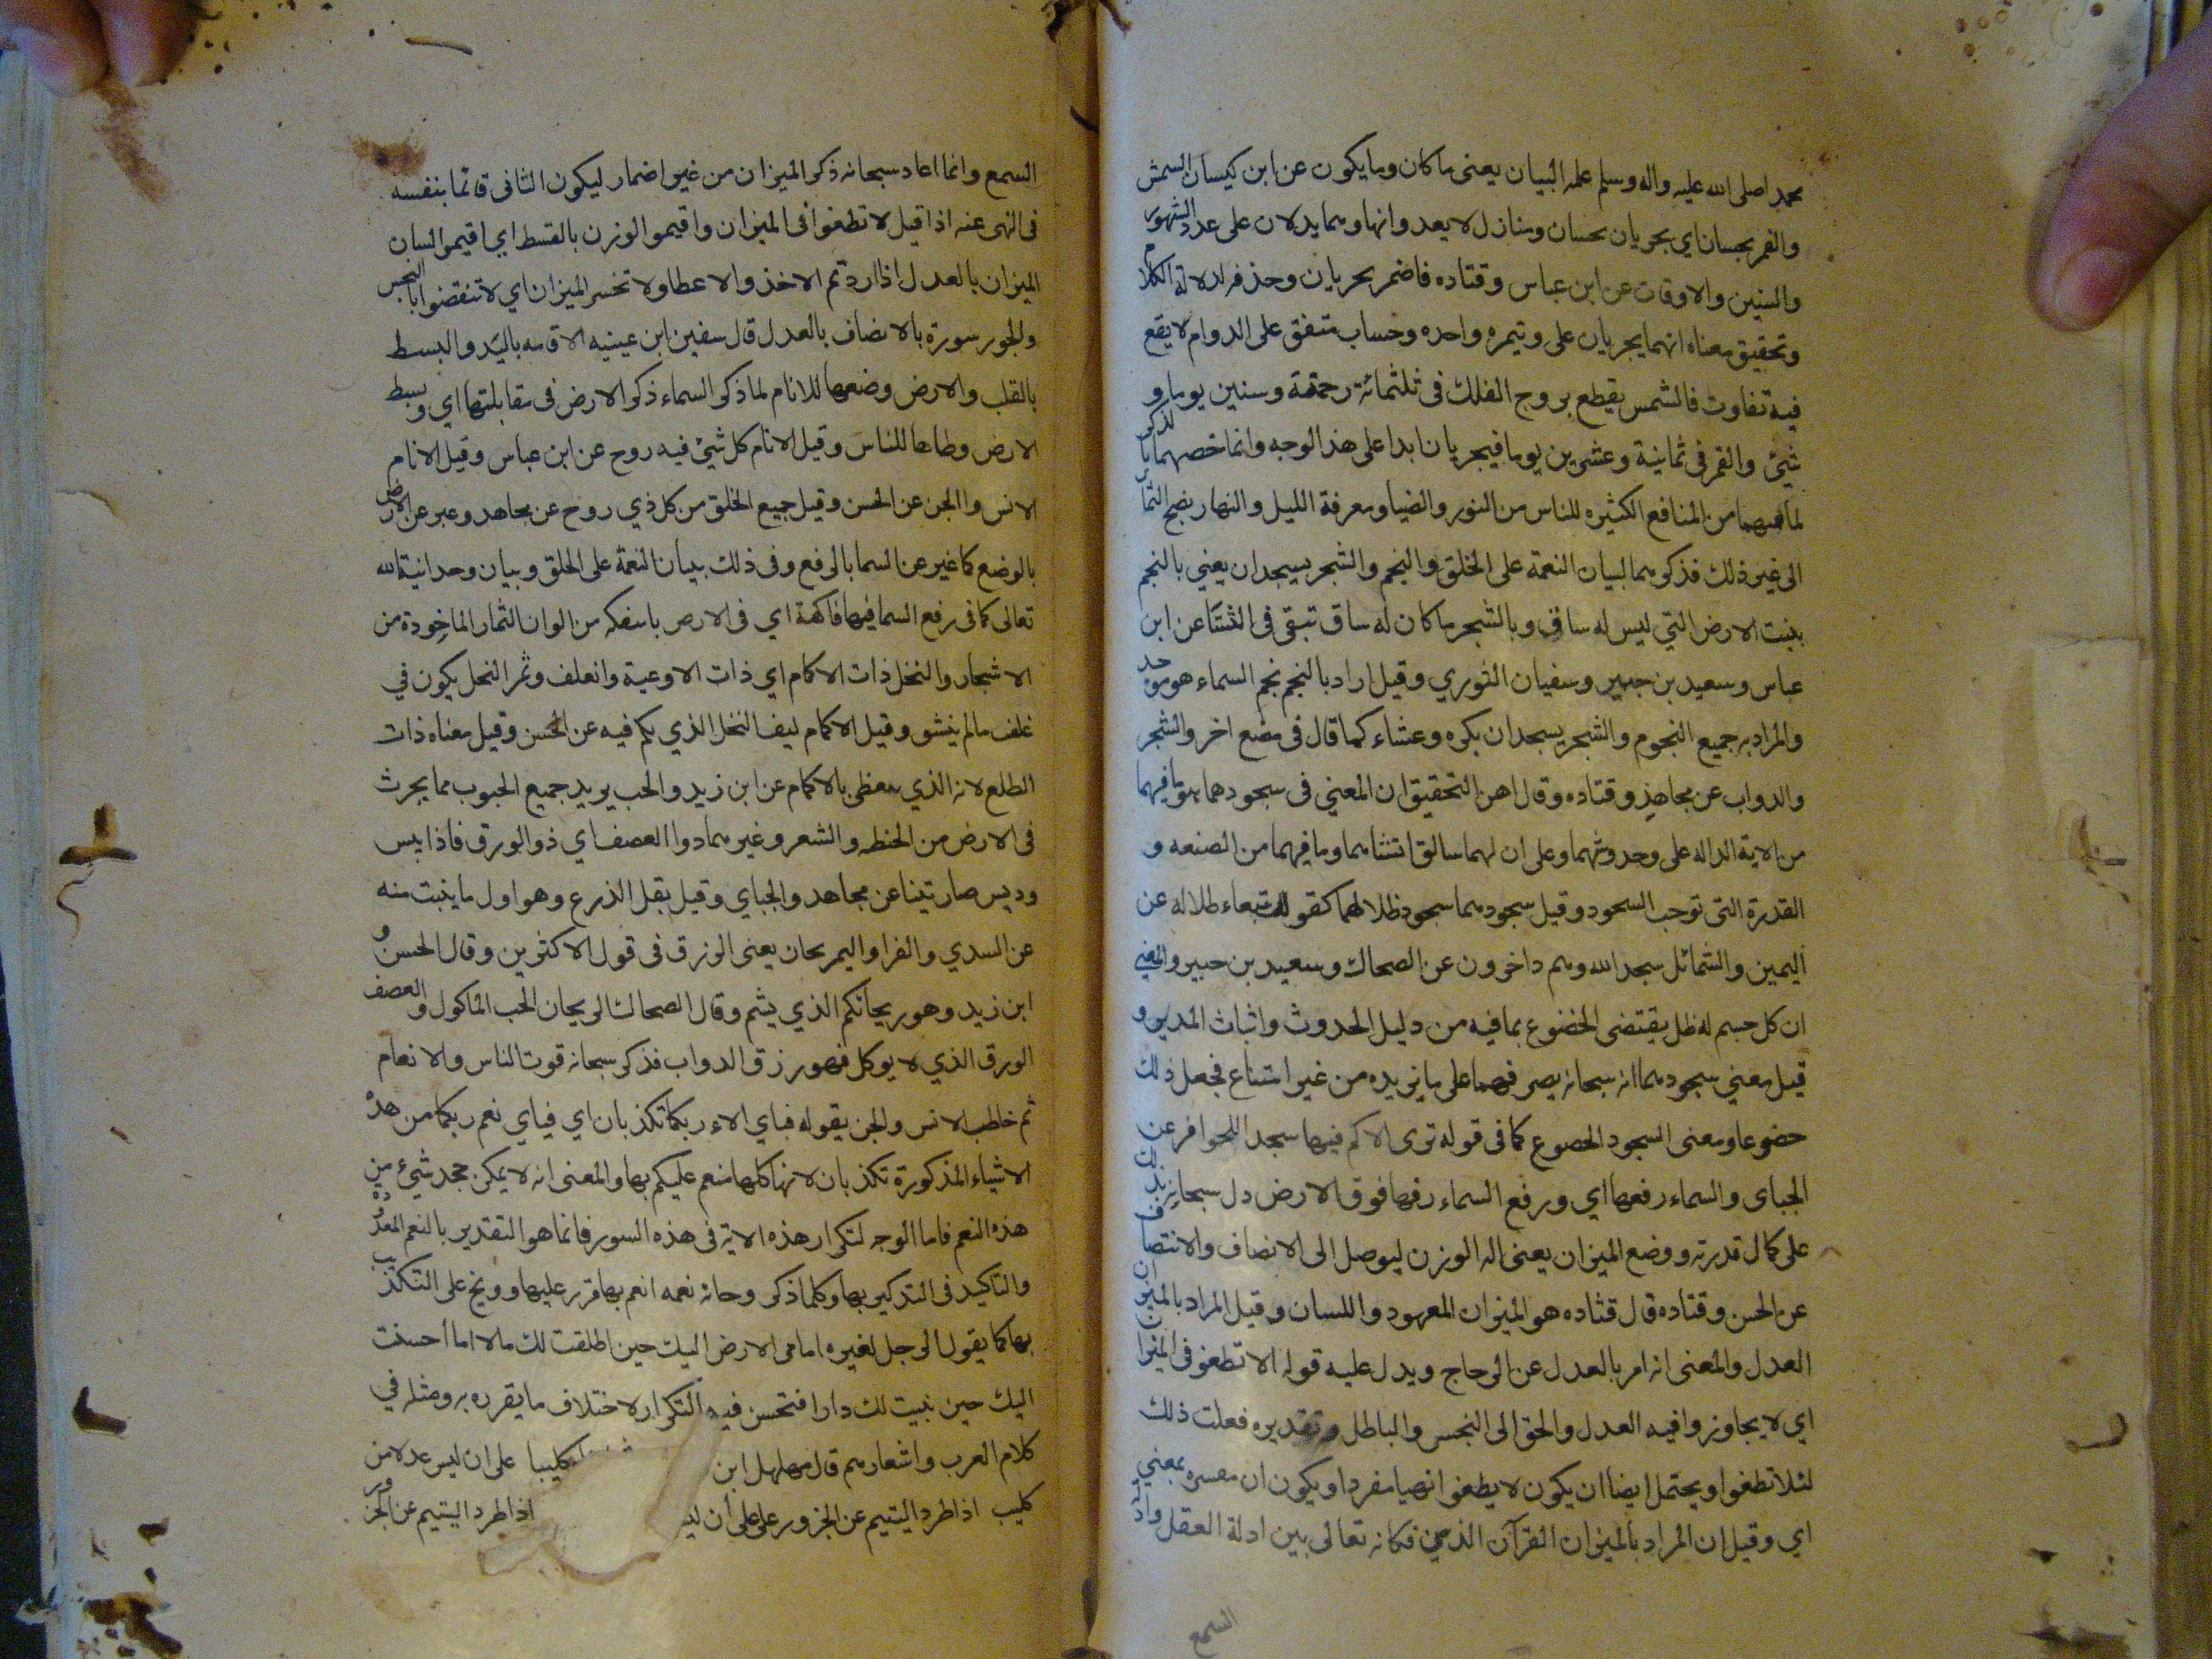 محمدا صلى الله عليه واله وسلم علمه البيان يعنى ما كان وما يكون عن ابن كيسان الشمش
والقمر بحسبان اي يجريان بحسبان ومنازل لا يعدوانها وهما يدلان على عدد الشهور
والسنين والاوقات عن ابن عباس وقتاده فاضمر يجريان وحذفه لدلالة الكلام
وتحقيق معناه انهما يجريان على وتيره واحده وحساب متفق على الدوام لا يقع
فيه تفاوت فالشمس يقطع بروج الفلك فى ثلثمائة وستين يوما و
شئ والقمر فى ثمانية وعشرين يوما فيجريان ابدا على هذا الوجه وانما خصهما بالذكر
لما فيهما من المنافع الكثيره للناس من النور والضيا ومعرفة الليل والنهار ونضج الثمار
الى غير ذلك فذكرهما لبيان النعمة على الخلق والنجم والشجر يسجدان يعني بالنجم
بنبت الارض التي ليس له ساق وبالشجر ما كان له ساق تبقى فى الشتا عن ابن
عباس وسعيد بن جبير وسفيان الثوري وقيل اراد بالنجم نجم السماء هو موحد
والمراد به جميع النجوم والشجر يسجدان بكره وعشاء كما قال فى موضع اخر والشجر
والدواب عن مجاهد وقتاده وقال اهل التحقيق ان المعني فى سجودهما هو ما فيهما
من الاية الداله على وحدوثهما وعلى ان لهما سالقا انشاهما وما فيهما من الصنعه و
القدرة التى توجب السجود وقيل سجودهما سجود ظلالهما كقوله يتفيا ظلاله عن
اليمين والشمائل سجد الله وهم داخرون عن الضحاك وسعيد بن جبير والمعني
ان كل جسم له ظل يقتضى الخضوع بما فيه من دليل الحدوث واثبات المدبر و
قيل معني سجودهما انه سبحانه يصرفهما على ما يريده من غير امتناع فجعل ذلك
خضوعا ومعنى السجود الخضوع كما فى قوله ترى الاكم فيها سجد اللحوافر عن
الجباى والسماء رفعها اي ورفع السماء رفعها فوق الارض دل سبحانه بذلك
على كمال قدرته ووضع الميزان يعنى اله الوزن ليوصل الى الانصاف والانتصاف
عن الحسن وقتاده قال قتاده هو الميزان المعهود واللسان وقيل المراد بالميزان
العدل والمعنى انه امر بالعدل عن الزجاج ويدل عليه قوله الا تطغو فى الميزان
اي لا يجاوزوا فيه العدل والحق الى النجس والباطل وتقديره فعلت ذلك
لئلا تطغوا ويحتمل ايضا ان يكون لا يطغوا نهيا مفردا ويكون ان مفسره بمعني
اي وقيل ان المراد بالميزان القرآن الذي فكانه تعالى بين ادلة العقل وادلة
السمع
السمع وانما اعاد سبحانه ذكر الميزان من غير اضمار ليكون الثانى قائما بنفسه
فى النهى عنه اذا قيل لا تطغوا فى الميزان واقيموا الوزن بالقسط اي اقيموا لسان
الميزان بالعدل اذا اردتم الاخذ والاعطا ولا تخسر الميزان اي لا تنقضوا بالنجس
والجور سورة بالانصاف بالعدل قال سفين ابن عيينه الاقامه باليد والبسط
بالقلب والارض وضعها للانام لما ذكر السماء ذكر الارض فى مقابلتها اي وبسط
الارض وطاها للناس وقيل الانام كل شئ فيه روح عن ابن عباس وقيل الانام
الانس واالجن عن الحسن وقيل جميع الخلق من كل ذي روح عن مجاهد وعبر عن الارض
بالوضع كما عبر عن السما بالرفع وفى ذلك بيان النعمة على الخلق وبيان وحدانية الله
تعالى كما فى رفع السما فيها فاكهة اي فى الارض ما يتفكه من الوان الثمار الماخوذة من
الاشجار والنخل ذات الاكمام اي ذات الاوعية وانعلف وثمر النخل يكون في
غلف ما لم ينشق وقيل الاكمام ليف النخل الذي يكم فيه عن الحسن وقيل معناه ذات
الطلع لانه الذي يتغطى بالاكمام عن ابن زيد والحب يريد جميع الحبوب مما يحرث
فى الارض من الحنطه والشعر وغيرهما ذوا العصف اي ذو الورق فاذا يبس
وديس صار تبنا عن مجاهد والجباي وقيل بقل الذرع وهو اول ما ينبت منه
عن السدي والفرا واليريحان يعنى الرزق فى قول الاكثرين وقال الحسن و
ابن زيد وهو ريحانكم الذي يشم وقال الضحاك الريحان الحب الماكول والعصف
الورق الذي لا يوكل فهو رزق الدواب فذكر سبحانه قوت الناس والانعام
ثم خاطب الانس والجن بقوله فباي الاء ربكما تكذبان اي فباي نعم ربكما من هذه
الاشياء المذكورة تكذبان لانها كلها منعم عليكم بها والمعنى انه لا يمكن جحد شيء من
هذه النعم فاما الوجه لتكرار هذه الاية فى هذه السور فانما هو التقدير بالنعم المعدوده
والتاكيد فى التذكير بها وكلما ذكر سبحانه نعمه انعم بها قرر عليها ووبخ على التكذيب
بها كما يقول الرجل لغيره اما مى الارض اليك حين اطلقت لك مالا اما احسنت
اليك حين بنيت لك دارا فتحسن فيه التكرار لاختلاف ما يقرره به ومثله في
كلام العرب واشعارهم قال مهلهل ابن كليبا على ان ليس عدلا من
كليب اذا طرد اليتيم عن الجزور على على أن ليـ اذا طرد اليتيم عن الجزور